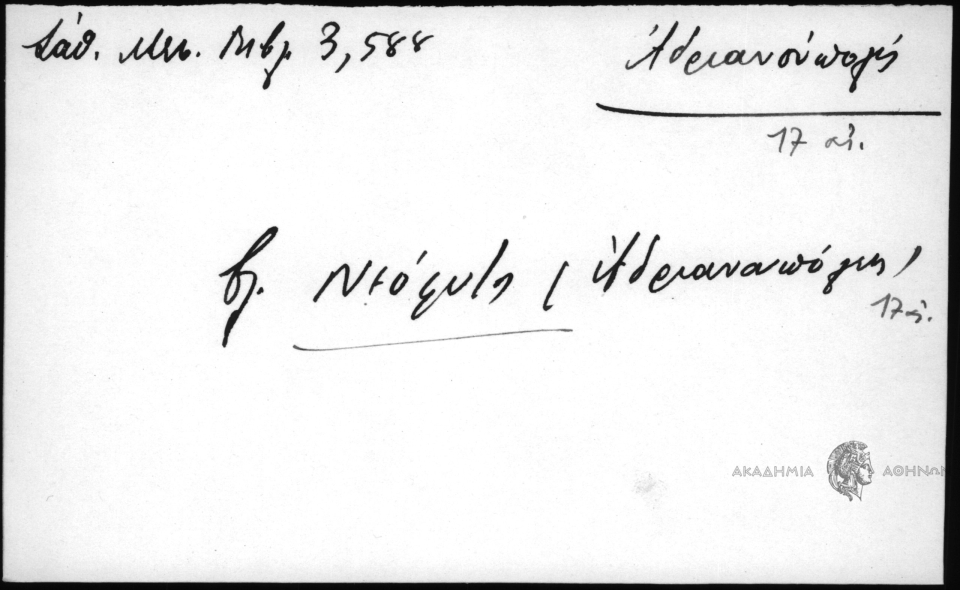 Σάθ. Μεσ. Βιβλ. 3, 588
Ἀδριανούπολις
17 αἰ.
βλ. Νεόφυτος (Ἀδριανουπόλεως)
17 αἰ.
ΑΚΑΔΗΜΙΑ ΑΘΗΝΩΝ